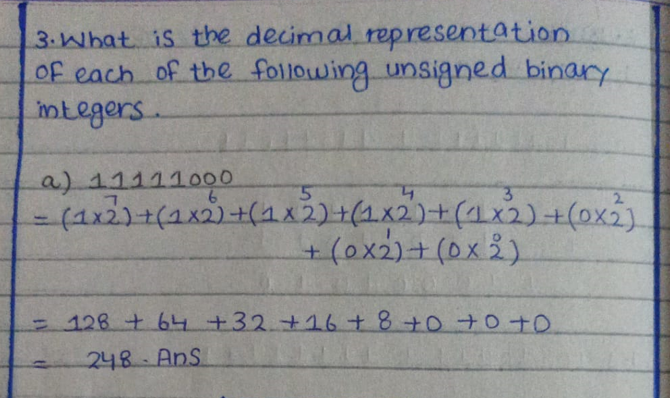 3. What is the decimal representation
of each of the following unsigned binary
integers.
a) 11111000
= (1×2⁷)+(1×2⁶)+(1×2⁵)+(1×2⁴)+(1×2³)+(0×2²)
+(0×2¹)+(0×2⁰)
= 128 + 64 +32 +16 + 8 +0 +0 +0
= 248. Ans